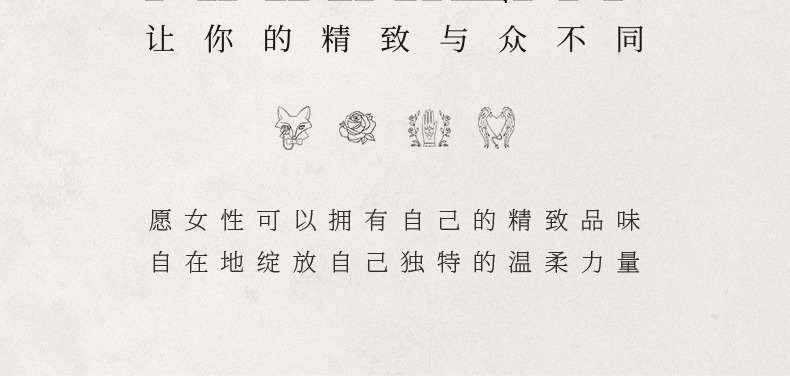 让你的精致与众不同
愿女性可以拥有自己的精致品味
自在地绽放自己独特的温柔力量